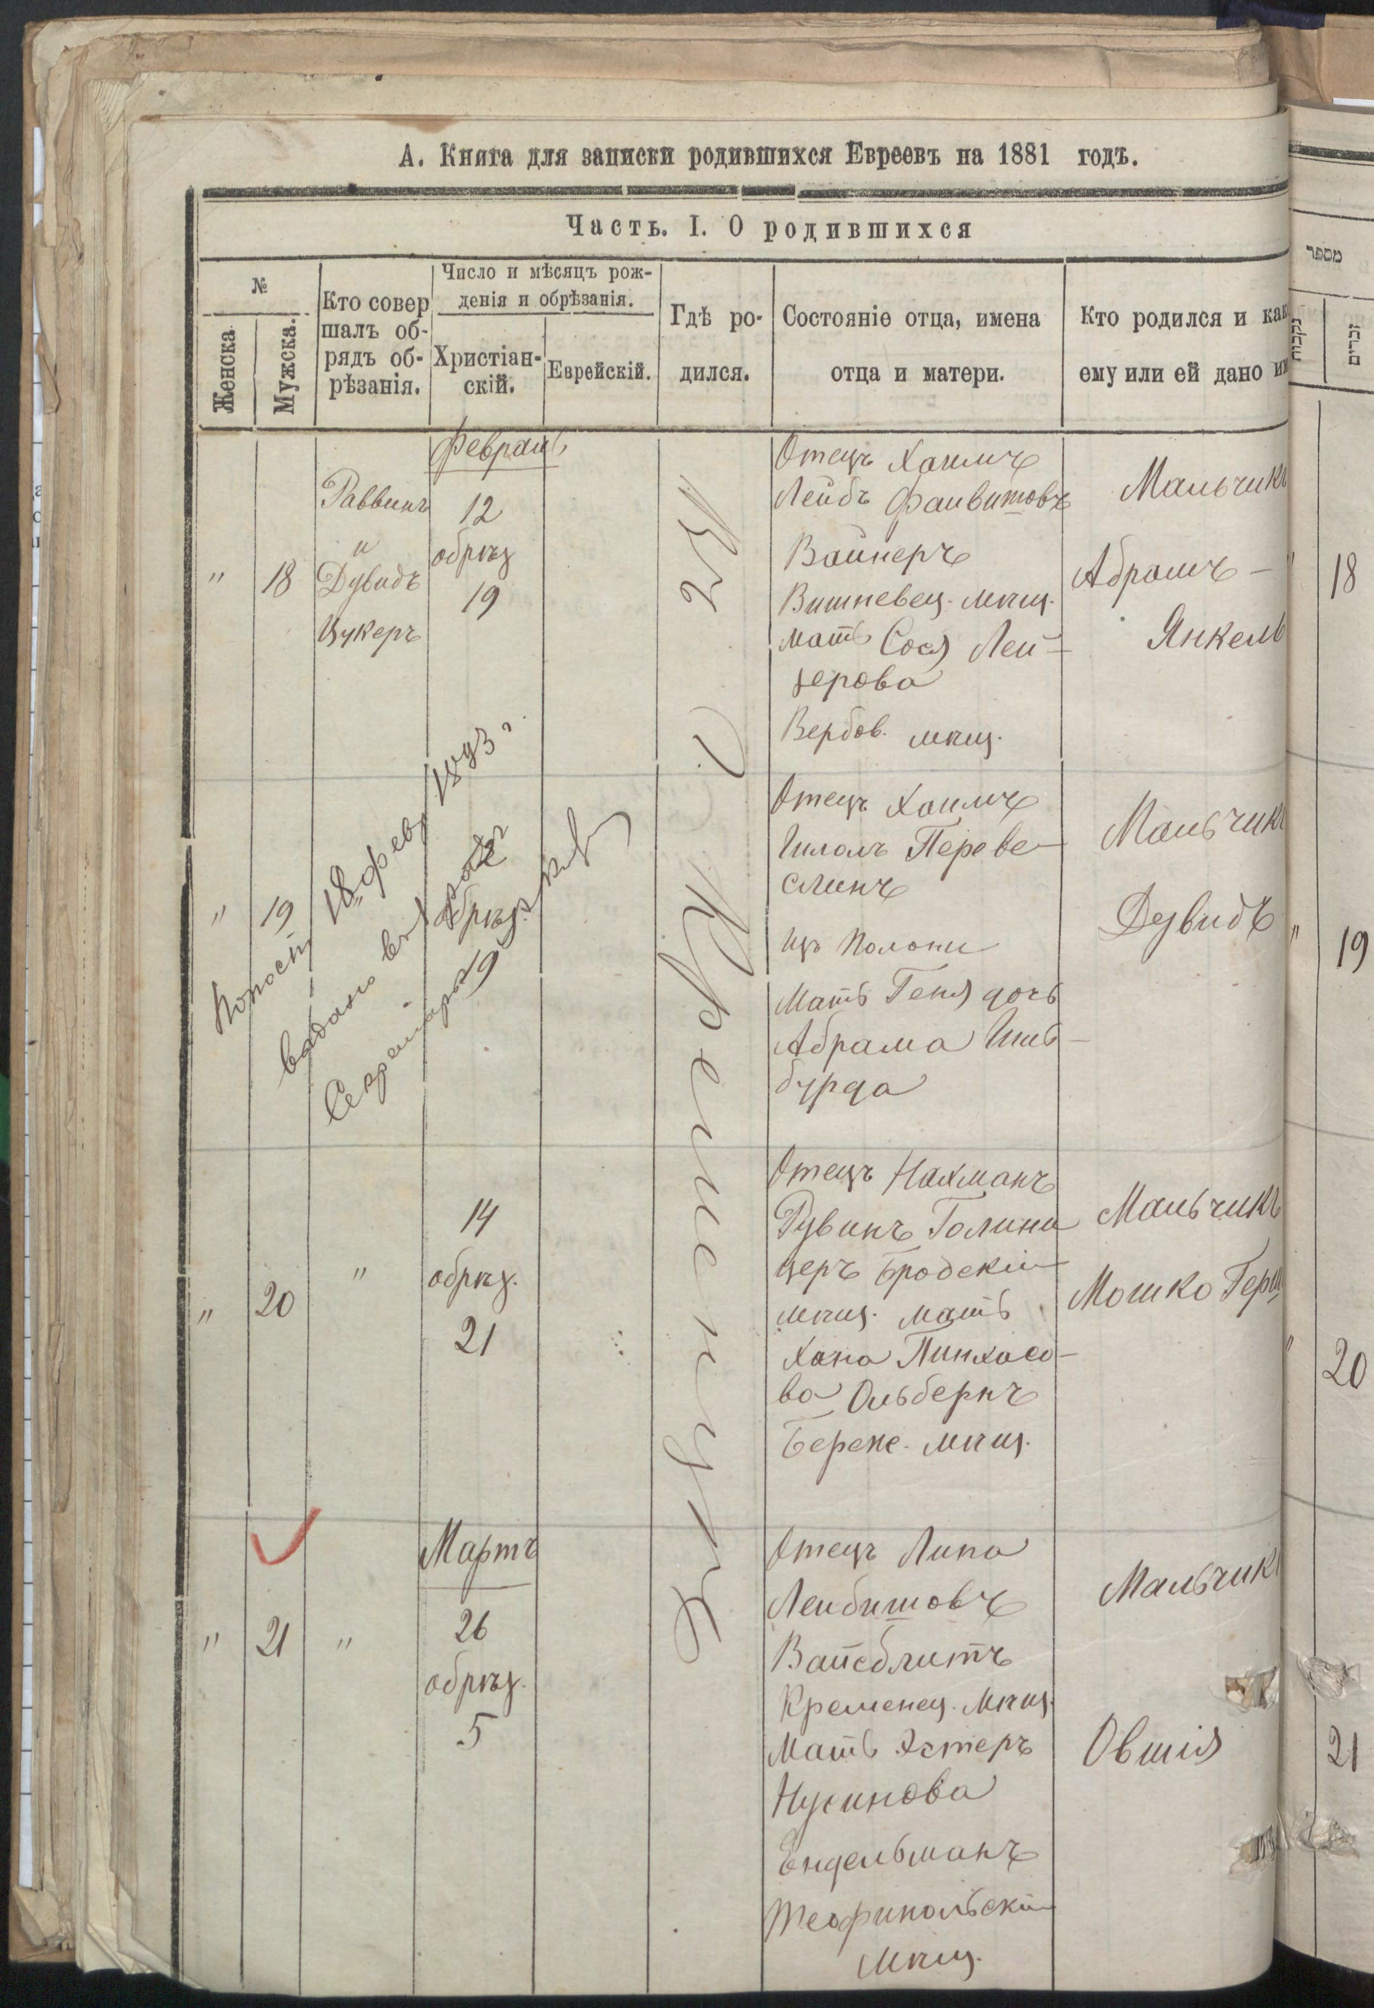 А. Книга для записки родившихся Евреевъ на 1881 годъ.
Часть. I. О родившихся
№
Женска
Мужска.
Кто совер
шалъ об-
рядъ об-
рѣзанія.
Число и мѣсяцъ рож-
денія и обрѣзанія.
Христіан-
скій.
Еврейскій.
Гдѣ ро-
дился.
Состояніе отца, имена
отца и матери.
Кто родился и как
ему или ей дано им
מספר
נקבות
זכרים
Въ г. Кременцѣ
" 18
Раввинъ
и
Дувидъ
Цукеръ
Февраль
12
обрѣз
19
Отецъ Хаимъ
Лейбъ Фаивитовъ
Вайнеръ
Вишневец. мѣщ.
мать Сося Лей-
зерова
Вербов. мѣщ.
Мальчикъ
Абрамъ -
Янкель
" 18
" 19
12
обрѣз.
19
18 фев. 1893 г.
выдано
Секретарь
Отецъ Хаимъ
Шломъ
Мать Геня дочь
Абрама
Мальчик
Дувидъ
" 19
" 20
"
14
обрѣз.
21
Отецъ Нахманъ
Рувинъ
церъ Бродскій
мѣщ. мать
Хана Пинхасо-
ва
мѣщ.
Мальчикъ
Мошко Герш
" 20
" 21
"
Мартъ
26
обрѣз.
5
Отецъ Липа
Лейбишовъ
Вайсблитъ
Кременец. мѣщ.
Мать Эстеръ
Нусинова
Ендельманъ
Теофипольскій
мѣщ.
Мальчик
Овшія
21